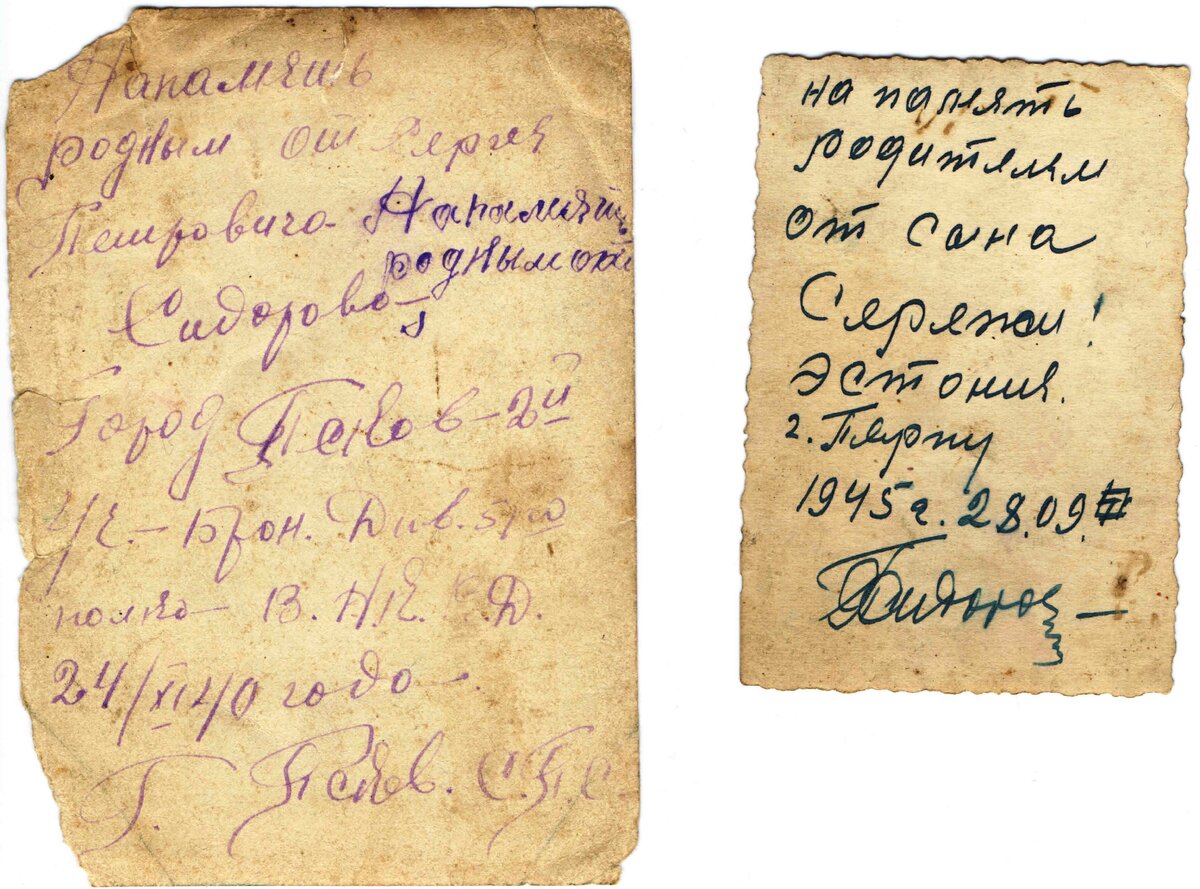 Напамять
родным от Сергея
Петровича Напамять
родным от
Сидорова
Город Псков – 2й
Брон. Див.
полка В. Н.К. В Д.
24/XI 40 года
Г. Псков. С.П С
на память
родителям
от сына
Сережи!
Эстония.
г. Пярну
1945 г. 28.09.
Сидоров